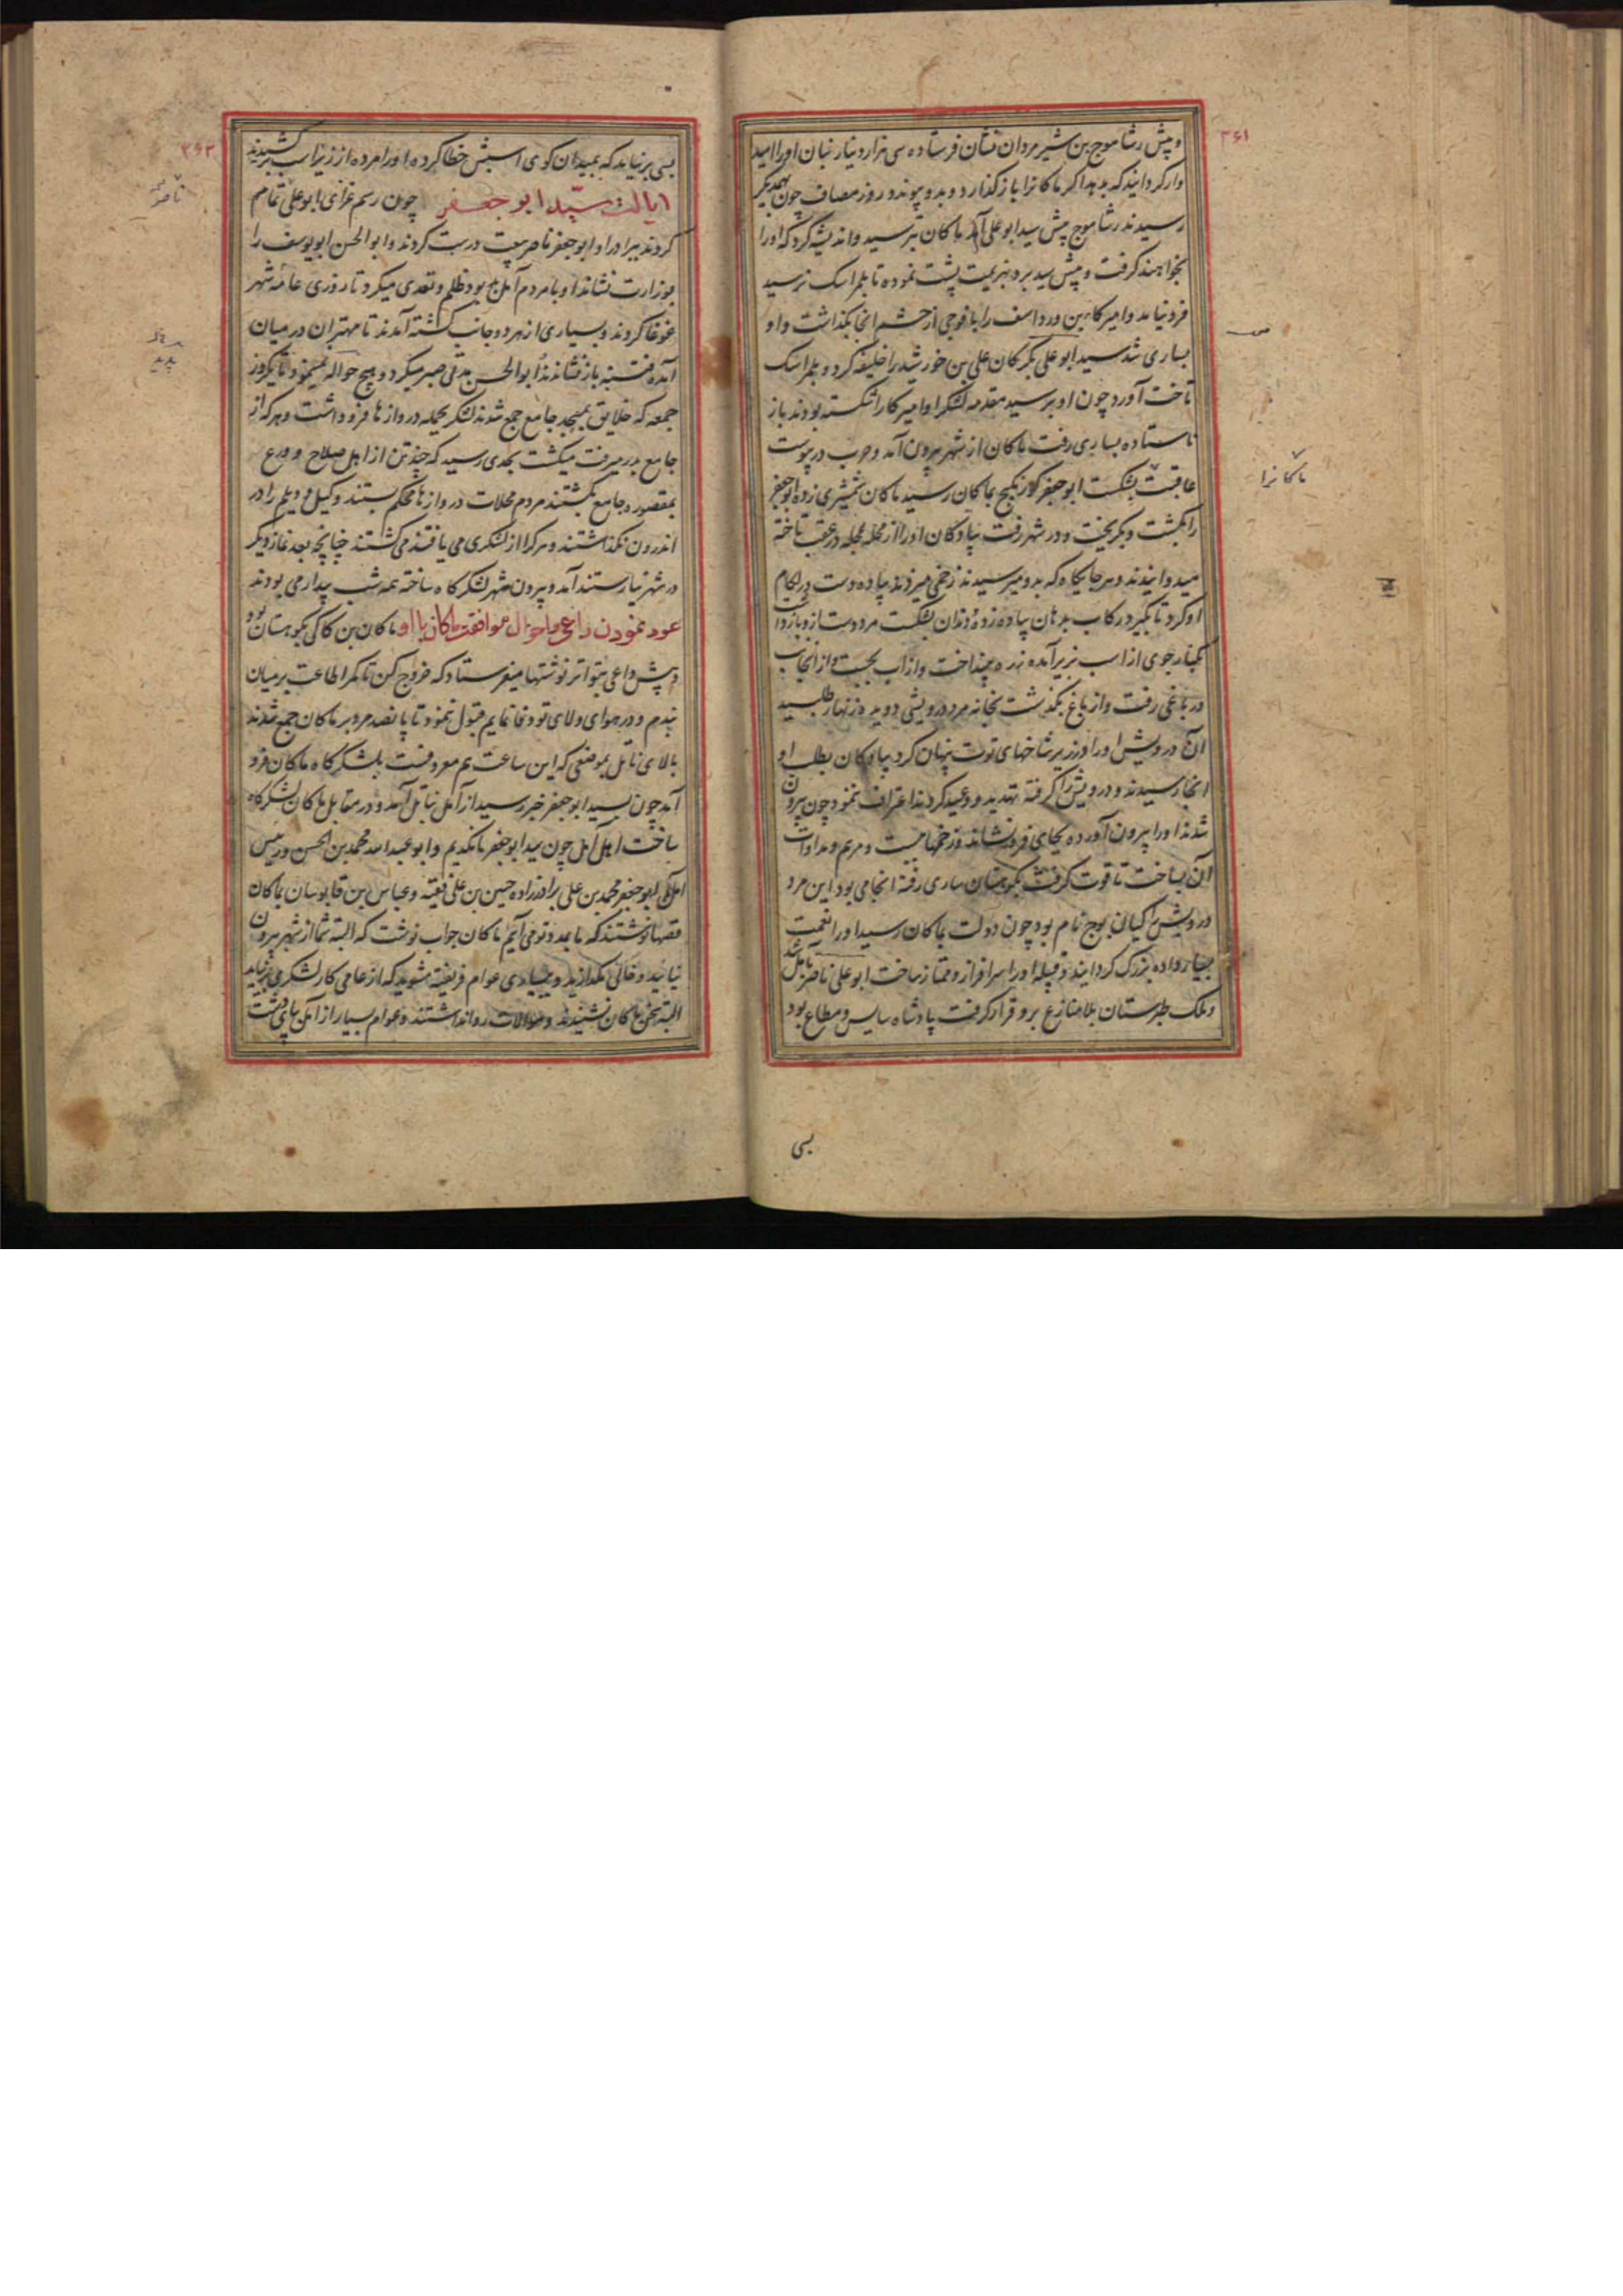 ۳۶۱
و پیش رشاموج بن شیر مردان فشان فرستاده سی هزار دینار نبان او را امید
وار گردانیدند که بدهد اگر ماکانرا باز گذارد و بدو پیوندد روز مصاف چون بهمدیگر
رسیدند رشاموج پیش سید ابو علی آمد ماکان بترسید و اندیشه کرد که او را
بخواهند گرفت و پیش سید برد بهزیمت پشت نموده تا بلمراسک نرسید
فرو نیامد و امیرکا بن ورداسف را با فوجی از حشم انجا بگذاشت و او
بساری شد سید ابو علی بگرگان علی بن خورشید را خلیفه کرد و بلمراسک
تاخت آورد چون او برسید مقدمه لشکر او امیرکا را شکسته بودند باز
ناستاده بساری رفت ماکان از شهر بیرون آمد و حرب در پیوست
عاقبت بشکست ابو جعفر کورنکیج بماکان رسید ماکان شمشیری زده ابو جعفر
را بکشت و بگریخت و در شهر رفت پیادگان او را از محله بمحله در عقب تاخته
میدوانیدند و هر جایگاه که بدو میرسیدند زخمی میزدند پیاده دست در لکام
او کرد تا بگیرد رکاب بدهان پیاده زد و دندان بشکست مرد دست ازو باز داشت
بکنار جوی از اسب بزیر آمده زره بینداخت و از آب بجست و از انجانب
در باغی رفت و از باغ بگذشت بخانه مرد درویشی دویده زنهار طلبید
آن درویش او را در زیر شاخهای توت پنهان کرد پیادگان بطلب او
انجا رسیدند و درویش را گرفته تهدید و وعید کردند اعتراف ننمود چون بیرون
شدند او را بیرون آورده بجای فرو نشاند و زخمها ببست و مرهم و مداوات
آن بساخت تا قوت گرفت بکوهستان ساری رفته انجا می بود این مرد
درویش کیان بوج نام بود چون دولت بماکان رسید او را نعمت
بسیار داده بزرگ گردانید و قبیله او را سرافراز و ممتاز ساخت ابو علی ناصر بآمل شد
و ملک طبرستان بلا منازع برو قرار گرفت پادشاه سایس و مطاع بود
ماکانرا
بسی
۳۶۲
بسی برنیامد که بمیدان کوی اسبش خطا کرده او را مرده از زیر اسب برکشیدند
ایالت سید ابو جعفر چون رسم عزای ابو علی تمام
کردند برادر او ابو جعفر ناصر بیعت درست کردند و ابو الحسن ابو یوسف را
بوزارت نشاند او با مردم آمل بد بود ظلم و تعدی میکرد تا روزی عامه شهر
غوغا کردند و بسیاری از هر دو جانب کشته آمدند تا مهتران در میان
آمده فتنه باز نشاندند ابو الحسن مدتی صبر میکرد و هیچ حواله نمینمود تا یکروز
جمعه که خلایق بمسجد جامع جمع شدند لشکر بجمله دروازها فرو داشت و هر که از
جامع بدر میرفت میکشت بحدی رسید که چند تن از اهل صلاح و ورع
بمقصوره جامع بکشتند مردم محلات دروازها محکم ببستند و گیل و دیلم را در
اندرون نگذاشتند و هر کرا از لشکری می یافتند می کشتند چنانچه بعد نماز دیگر
در شهر نیارستند آمد و بیرون شهر لشکرگاه ساخته همه شب بیدار می بودند
عود نمودن داعی و احوال موافقت ماکان با او ماکان بن کاکی بکوهستان بود
و پیش داعی بتواتر نوشتها میفرستاد که خروج کن تا کمر اطاعت بر میان
بندم و در هوای ولای تو وفا نمایم قبول نمود تا پانصد مرد بر ماکان جمع شدند
بالای ناتل بموضعی که این ساعت هم معروفست بلشکرگاه ماکان فرو
آمد چون بسید ابو جعفر خبر رسید از آمل بناتل آمد و در مقابل ماکان لشکرگاه
ساخت اهل آمل چون سید ابو جعفر مانکدیم و ابو عبد الله محمد بن الحسن و رئیس
آمل ابو جعفر محمد بن علی برادرزاده حسین بن علی فقیه و عباس بن قابوسان بماکان
قصها نوشتند که ما بمدد تو می آییم ماکان جواب نوشت که البته شما از شهر بیرون
نیایید و خالی مگذارید و ببسیاری عوام فریفته مشوید که از عامی کار لشکری برنیاید
البته سخن ماکان نشنیدند و موالات روا نداشتند و عوام بسیار از آمل بپای دشت
ناصر
پدید